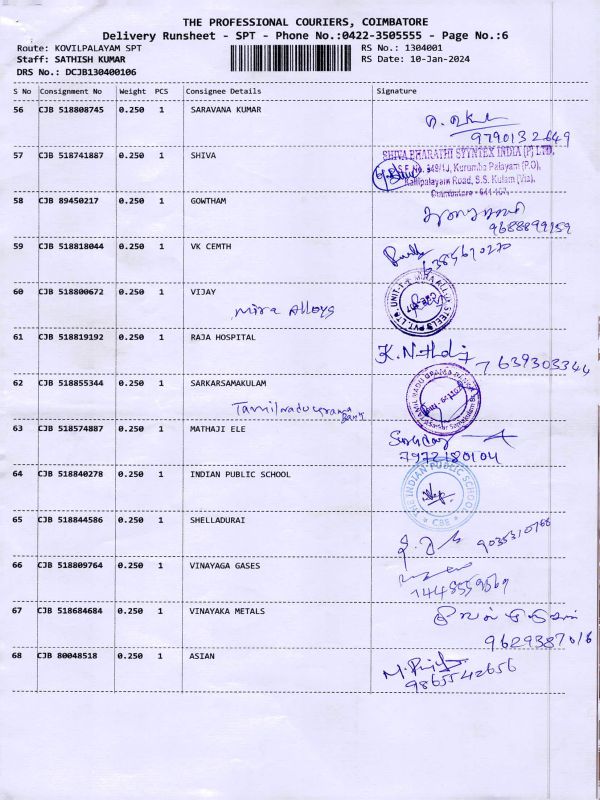 THE PROFESSIONAL COURIERS, COIMBATORE
Delivery Runsheet - SPT - Phone No.:0422-3505555 - Page No.:6
Route: KOVILPALAYAM SPT
RS No.: 1304001
Staff: SATHISH KUMAR
RS Date: 10-Jan-2024
DRS No.: DCJB130400106
S No Consignment No Weight PCS Consignee Details Signature
56 CJB 518808745 0.250 1 SARAVANA KUMAR
9790132649
57 CJB 518741887 0.250 1 SHIVA
SHIVA BHARATHI SYNTEX INDIA (P) LTD,
S.F. No. 549/1J, Kurumba Palayam (P.O),
Kallipalayam Road, S.S. Kulam (Via),
Coimbatore - 641 107.
58 CJB 89450217 0.250 1 GOWTHAM
9688899159
59 CJB 518818044 0.250 1 VK CEMTH
6385610270
60 CJB 518800672 0.250 1 VIJAY
Mira Alloys
MIRA ALLOY STEELS PVT. LTD. UNIT-1
61 CJB 518819192 0.250 1 RAJA HOSPITAL
7639303344
62 CJB 518855344 0.250 1 SARKARSAMAKULAM
Tamilnadu Grama Bank
63 CJB 518574887 0.250 1 MATHAJI ELE
7972180104
64 CJB 518840278 0.250 1 INDIAN PUBLIC SCHOOL
THE INDIAN PUBLIC SCHOOL
CBE
65 CJB 518844586 0.250 1 SHELLADURAI
66 CJB 518809764 0.250 1 VINAYAGA GASES
67 CJB 518684684 0.250 1 VINAYAKA METALS
9629387016
68 CJB 80048518 0.250 1 ASIAN
9865542656